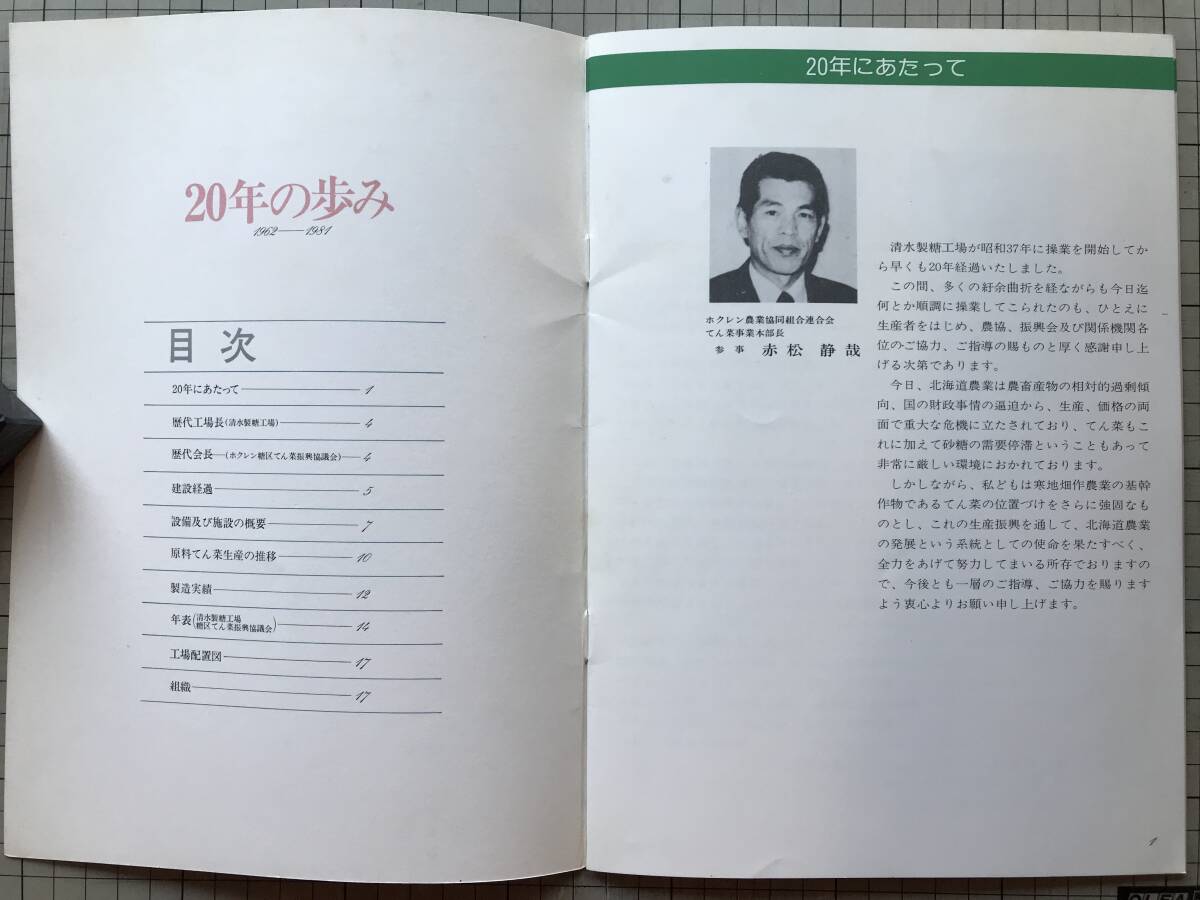 20年の歩み
1962——1981
目次
20年にあたって——1
歴代工場長(清水製糖工場)——4
歴代会長—(ホクレン糖区てん菜振興協議会)—4
建設経過——5
設備及び施設の概要——7
原料てん菜生産の推移——10
製造実績——12
年表(清水製糖工場 糖区てん菜振興協議会)——14
工場配置図——17
組織——17
20年にあたって
ホクレン農業協同組合連合会
てん菜事業本部長
参事 赤松静哉
清水製糖工場が昭和37年に操業を開始してか
ら早くも20年経過いたしました。
この間、多くの紆余曲折を経ながらも今日迄
何とか順調に操業してこられたのも、ひとえに
生産者をはじめ、農協、振興会及び関係機関各
位のご協力、ご指導の賜ものと厚く感謝申し上
げる次第であります。
今日、北海道農業は農畜産物の相対的過剰傾
向、国の財政事情の逼迫から、生産、価格の両
面で重大な危機に立たされており、てん菜もこ
れに加えて砂糖の需要停滞ということもあって
非常に厳しい環境におかれております。
しかしながら、私どもは寒地畑作農業の基幹
作物であるてん菜の位置づけをさらに強固なも
のとし、これの生産振興を通して、北海道農業
の発展という系統としての使命を果たすべく、
全力をあげて努力してまいる所存でおりますの
で、今後とも一層のご指導、ご協力を賜ります
よう衷心よりお願い申し上げます。
1